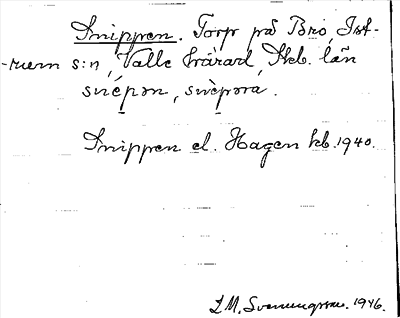 Snippen. Torp på Bro, Ist-
-rum s:n, Valle härad, Skb. län
snépən, snèpərα.
Snippen el. Hagen kb. 1940.
L.M. Svenungsson. 1946.